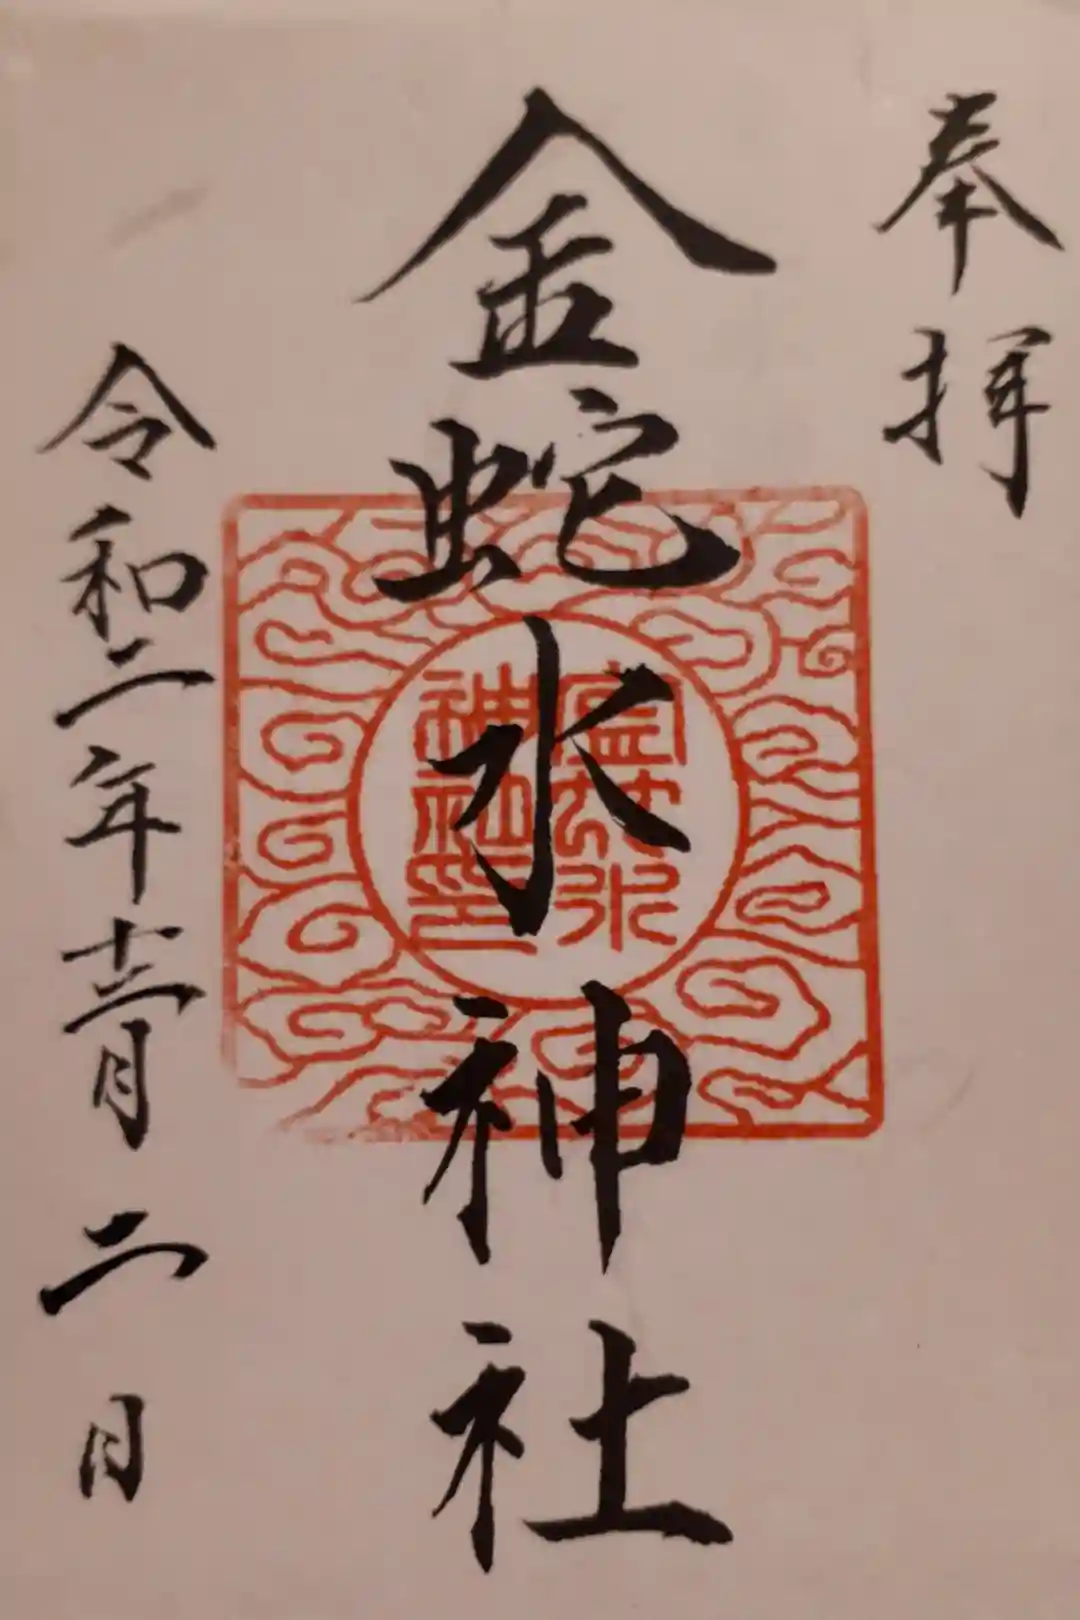 奉拝
金蛇水神社
令和二年十二月二日
神社印